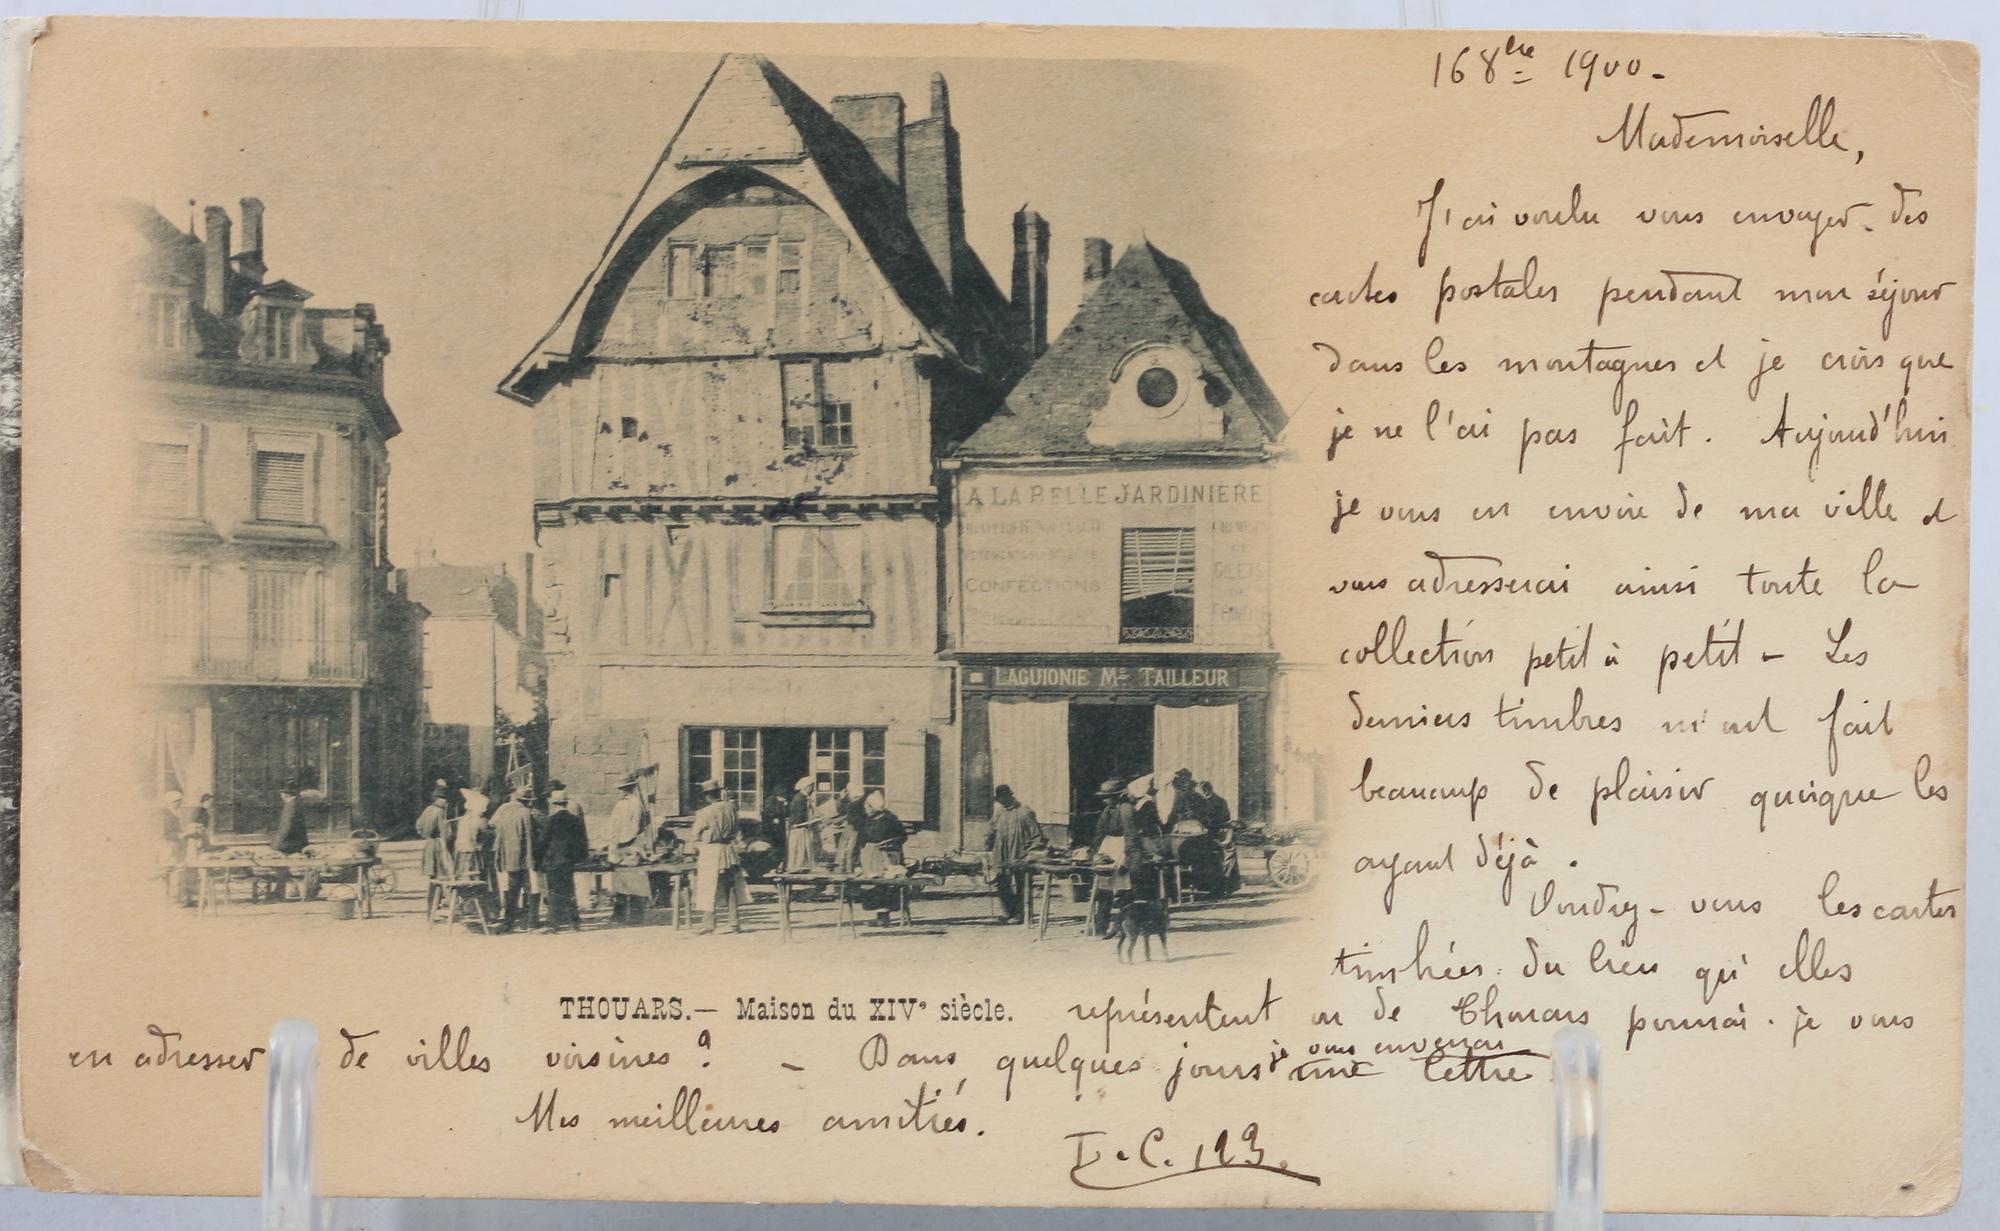 A LA BELLE JARDINIERE
CONFECTIONS
GILETS
LAGUIONIE Md TAILLEUR
THOUARS.— Maison du XIVe siècle.
16 8bre 1900.
Mademoiselle,
J'ai voulu vous envoyer des
cartes postales pendant mon séjour
dans les montagnes et je crois que
je ne l'ai pas fait. Aujourd'hui
je vous en envoie de ma ville et
vous adresserai ainsi toute la
collection petit à petit - Les
derniers timbres m'ont fait
beaucoup de plaisir quoique les
ayant déjà.
Voudrez-vous les cartes
timbrées du lieu qu'elles
représentent ou de Thouars pourrai-je vous
en adresser de villes voisines ? - Dans quelques jours je vous enverrai
une lettre
Mes meilleures amitiés.
L.C. 123.